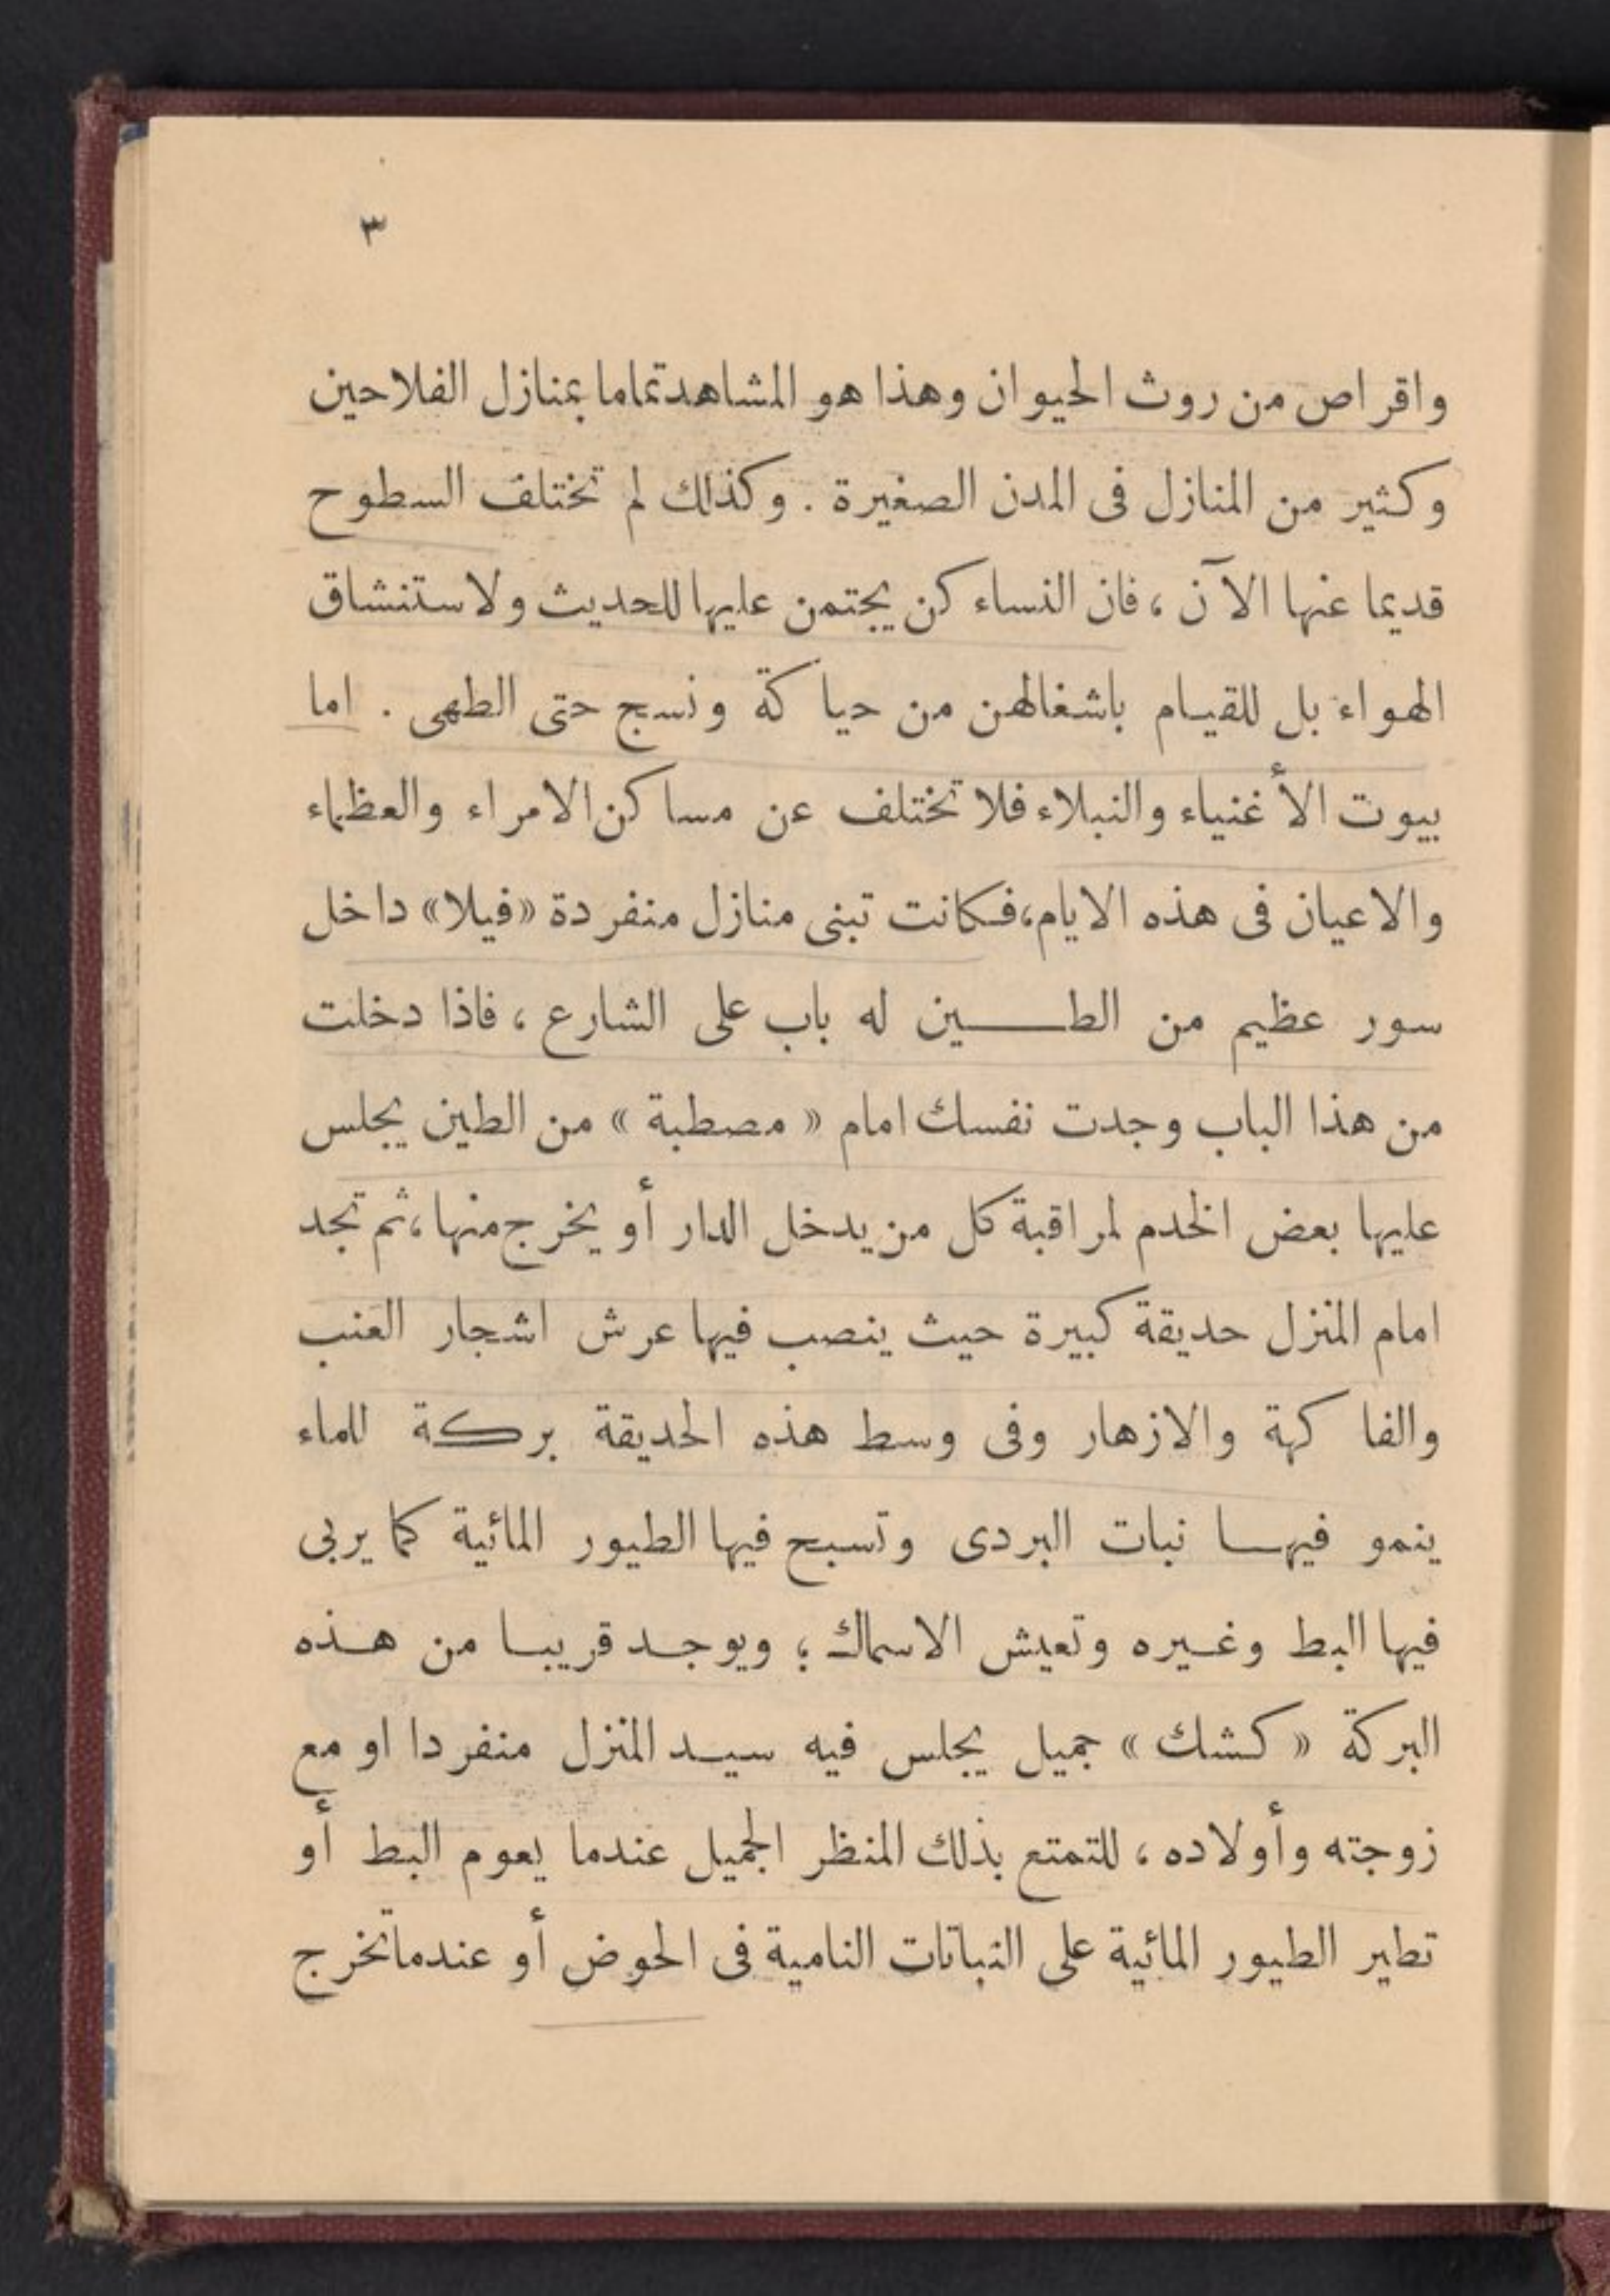 ٣
واقراص من روث الحيوان وهذا هو المشاهد تماما بمنازل الفلاحين
وكثير من المنازل فى المدن الصغيرة . وكذلك لم تختلف السطوح
قديما عنها الآن ، فان النساء كن يجتمن عليها للحديث ولاستنشاق
الهواء بل للقيام باشغالهن من حياكة ونسج حتى الطهى . اما
بيوت الأغنياء والنبلاء فلا تختلف عن مساكن الامراء والعظماء
والاعيان فى هذه الايام، فكانت تبنى منازل منفردة «فيلا» داخل
سور عظيم من الطين له باب على الشارع ، فاذا دخلت
من هذا الباب وجدت نفسك امام « مصطبة » من الطين يجلس
عليها بعض الخدم لمراقبة كل من يدخل الدار أو يخرج منها، ثم تجد
امام المنزل حديقة كبيرة حيث ينصب فيها عرش اشجار العنب
والفاكهة والازهار وفى وسط هذه الحديقة بركة للماء
ينمو فيها نبات البردى وتسبح فيها الطيور المائية كما يربى
فيها البط وغيره وتعيش الاسماك ؛ ويوجد قريبا من هذه
البركة « كشك » جميل يجلس فيه سيد المنزل منفردا او مع
زوجته وأولاده ، للتمتع بذلك المنظر الجميل عندما يعوم البط أو
تطير الطيور المائية على النباتات النامية فى الحوض أو عندما تخرج